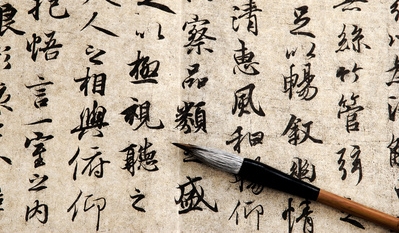 無絲竹管弦之
足以暢敘幽情
清惠風和暢仰
察品類之盛
以極視聽之
人之相與俯仰
抱悟言一室之內